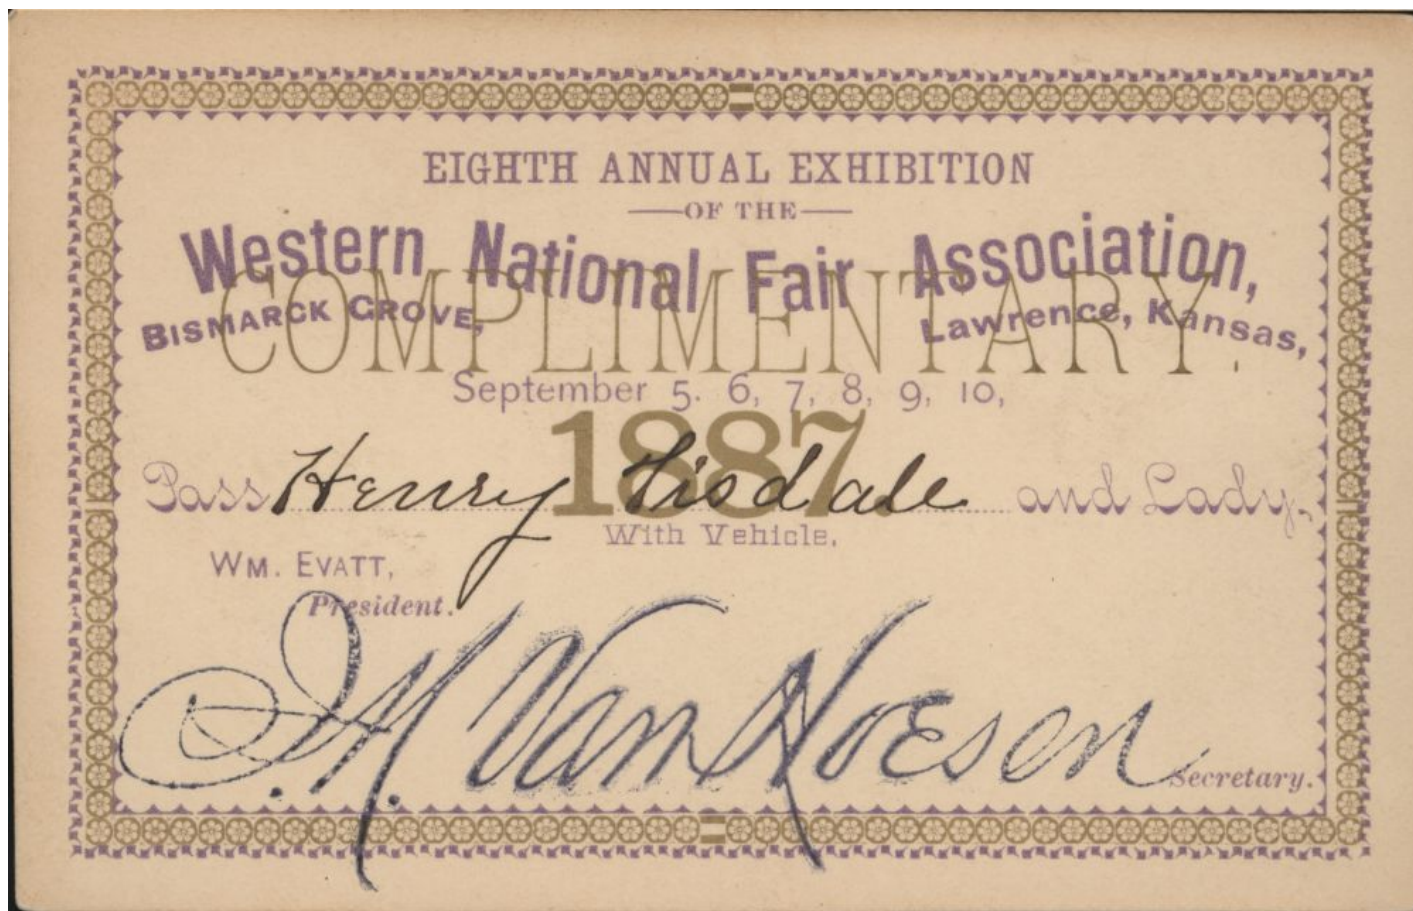 EIGHTH ANNUAL EXHIBITION
OF THE
Western National Fair Association,
COMPLIMENTARY.
BISMARCK GROVE, Lawrence, Kansas,
September 5. 6, 7, 8, 9, 10,
1887.
Pass Henry Tisdale and Lady,
With Vehicle.
WM. EVATT,
President.
I. M. Van Hoesen
Secretary.